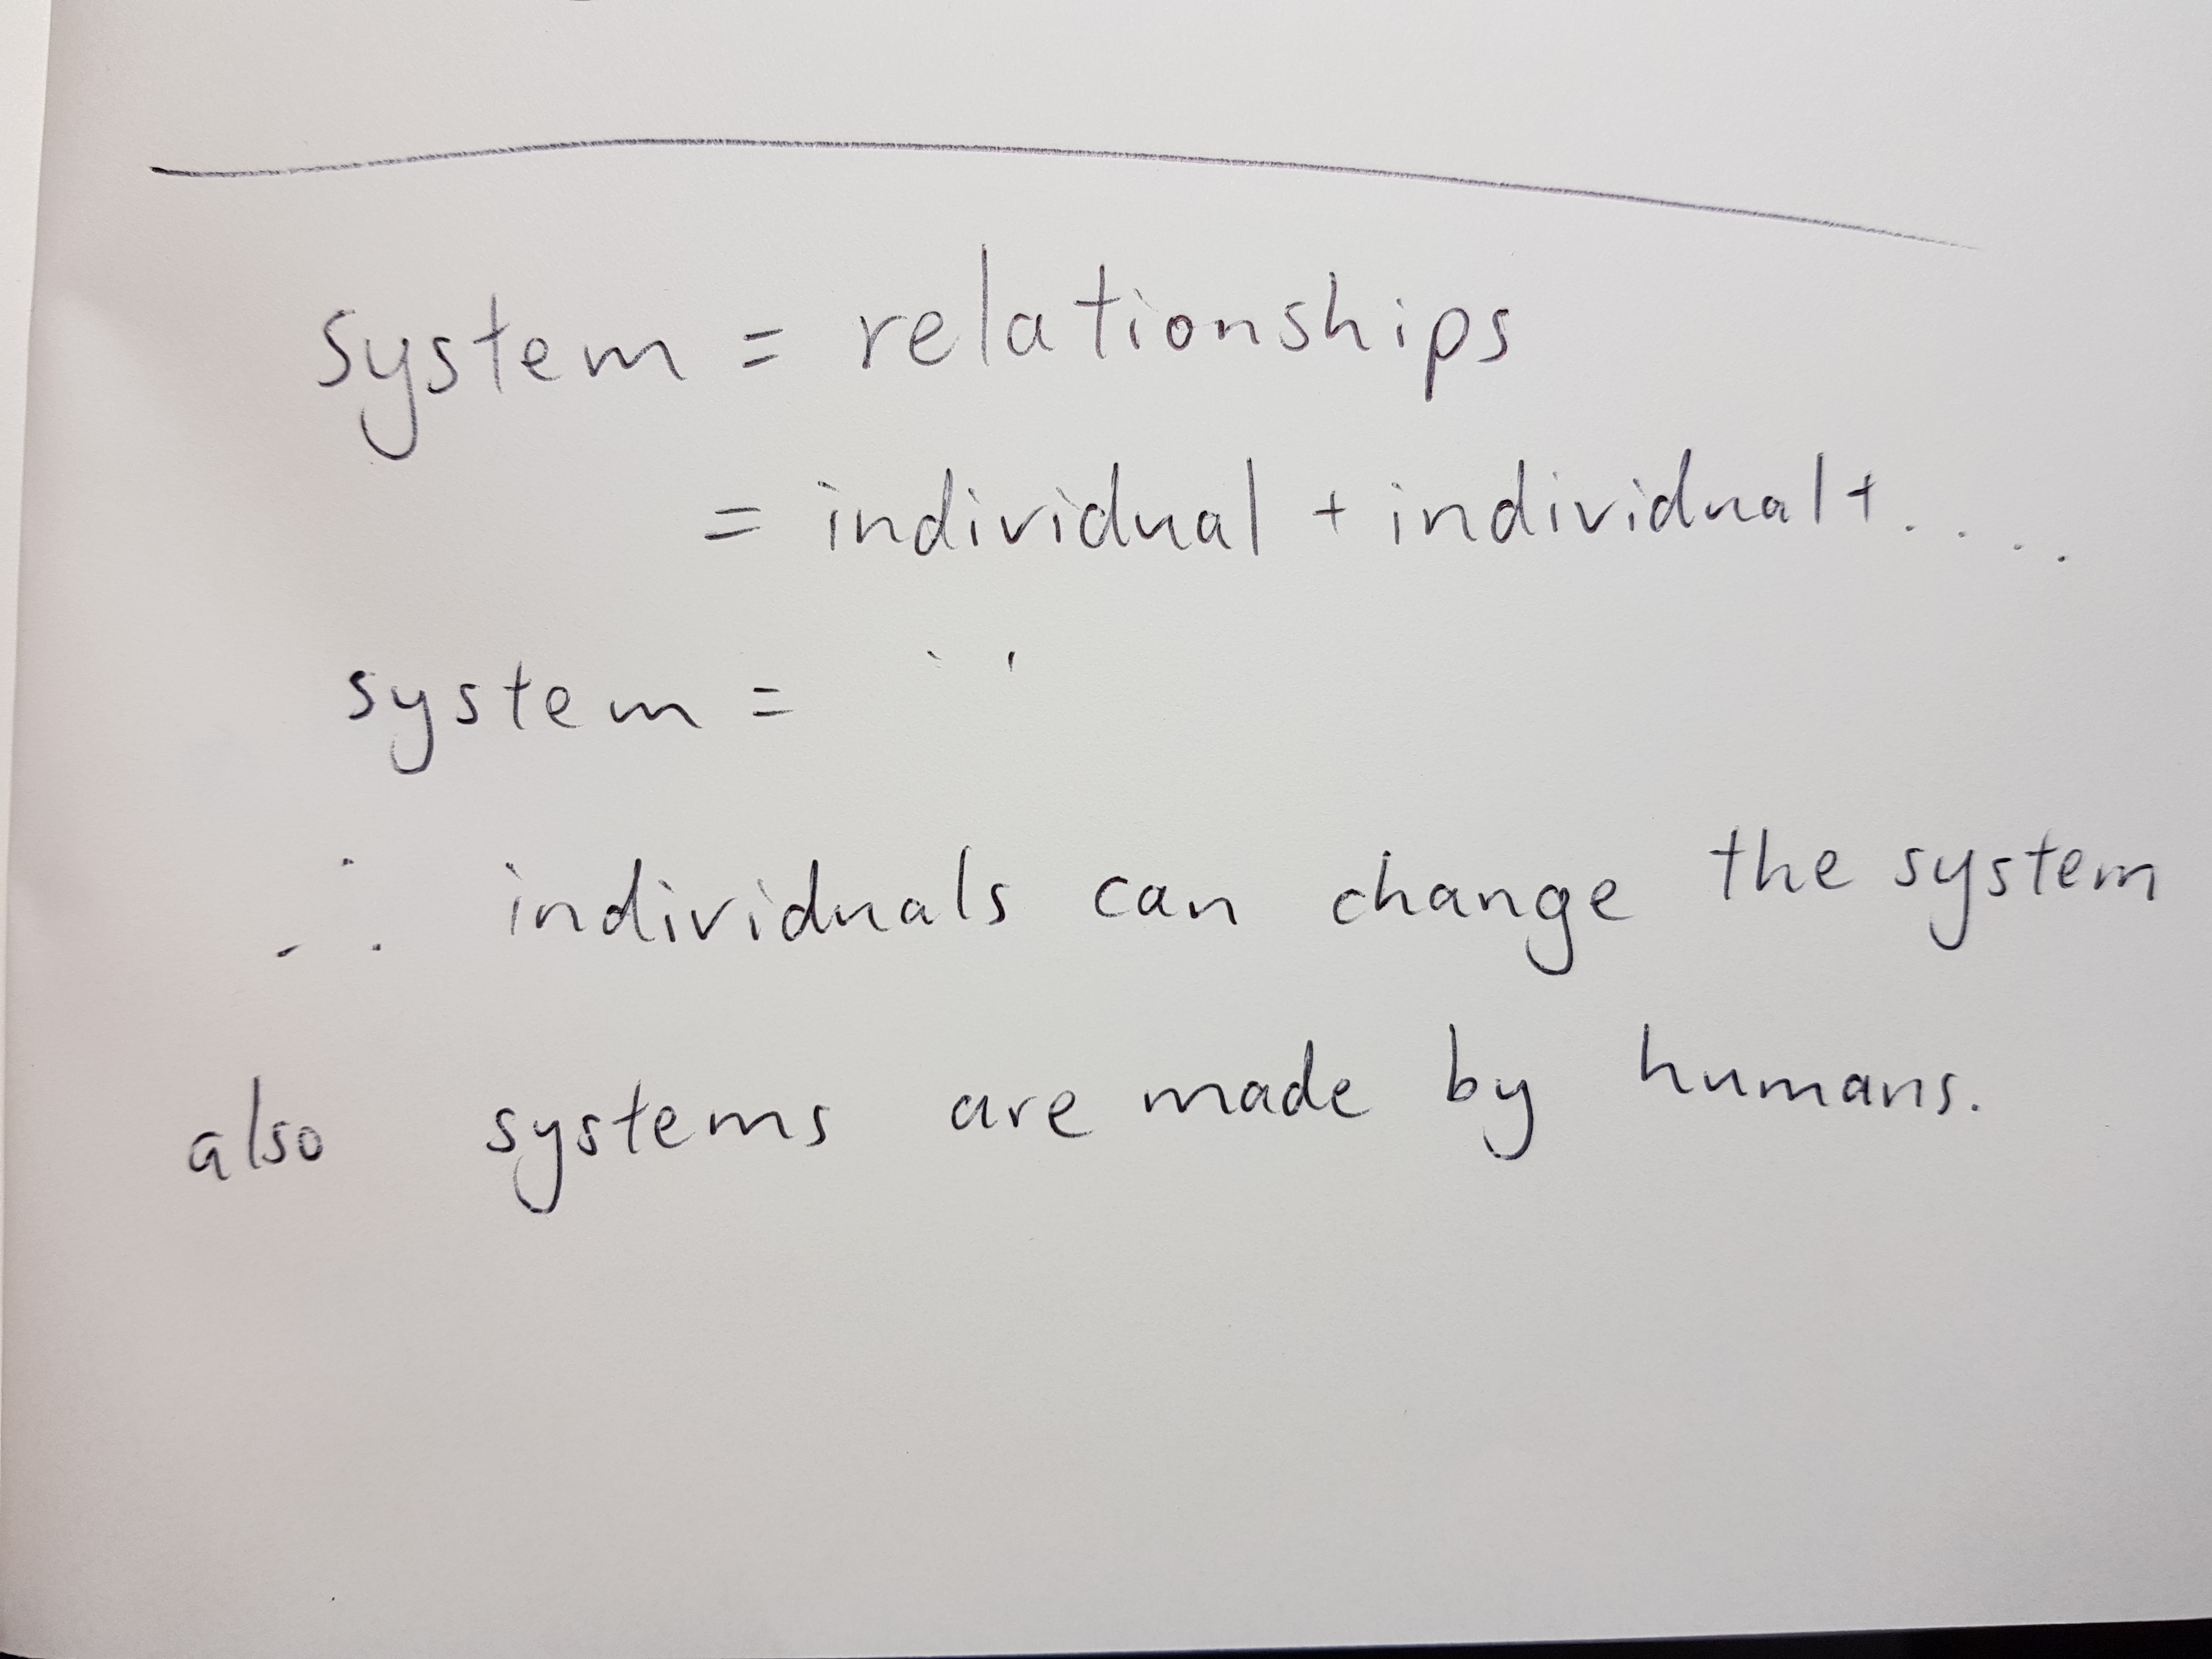 system = relationships
= individual + individual + ....
system = ''
∴ individuals can change the system
also systems are made by humans.